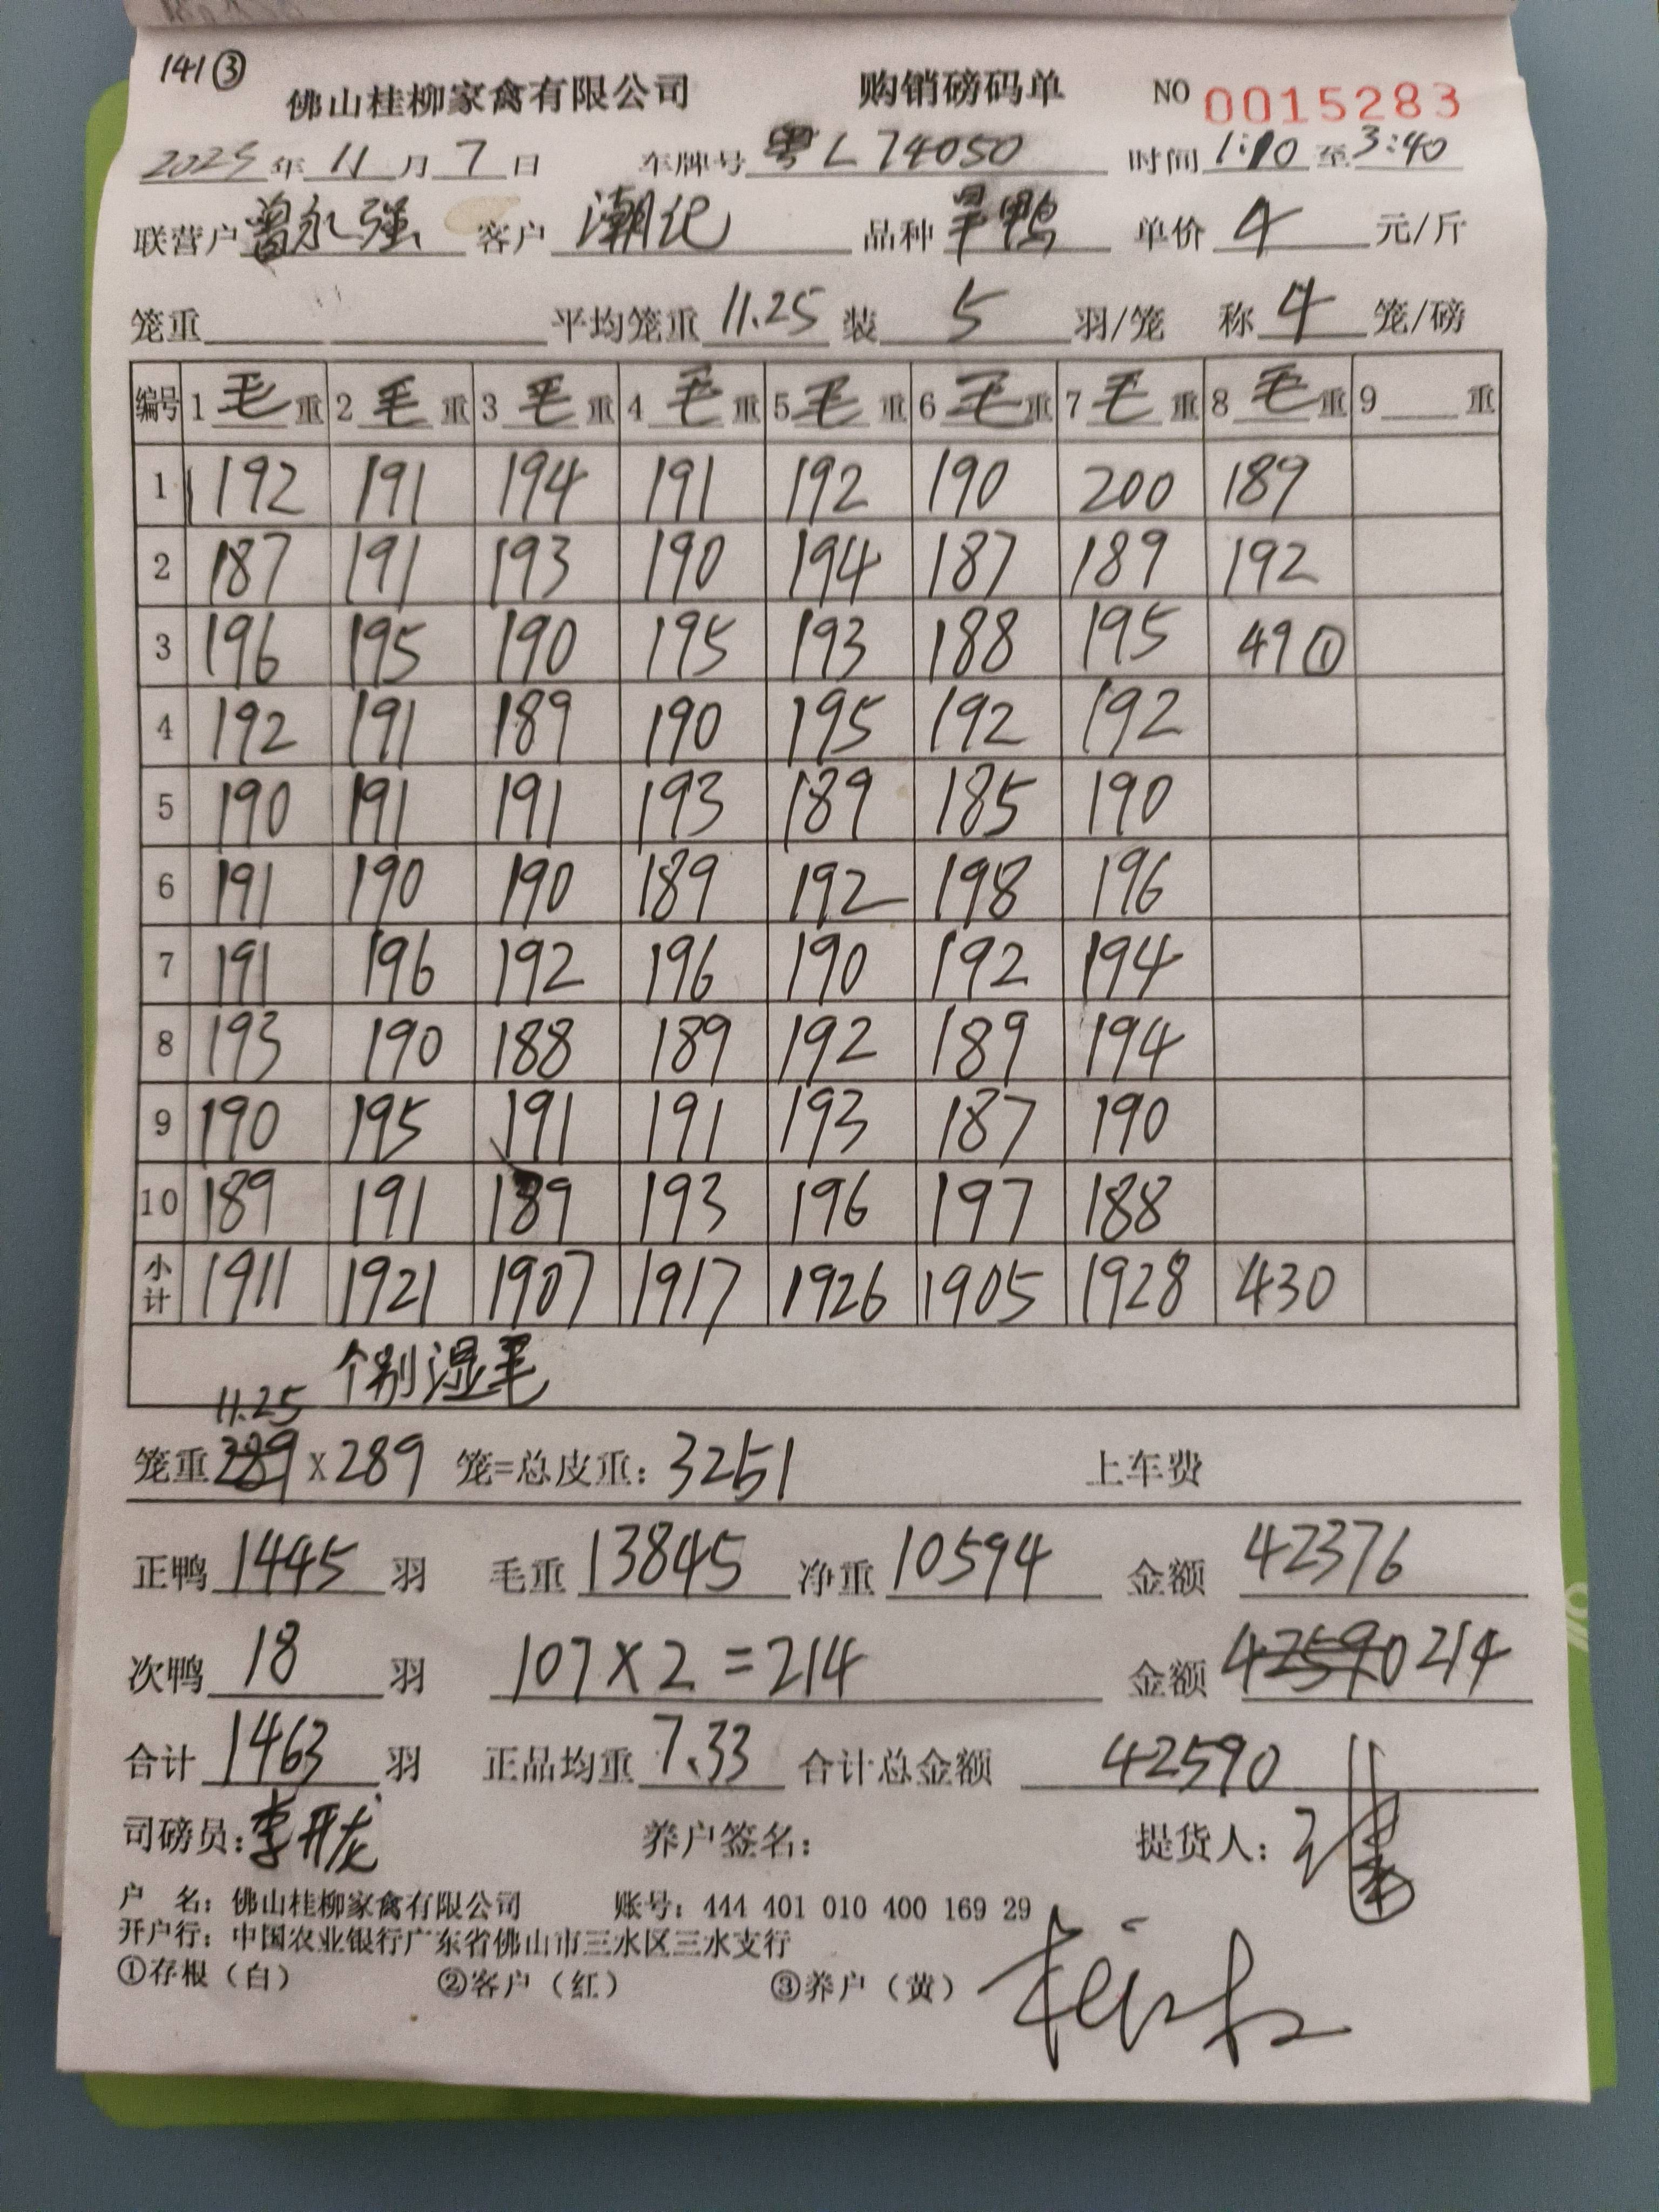 141③
佛山桂柳家禽有限公司 购销磅码单 NO 0015283
2025年11月7日 车牌号 粤L74050 时间 1:10 至 3:40
联营户 曾永强 客户 潮亿 品种 旱鸭 单价 4 元/斤
笼重 平均笼重 11.25 装 5 羽/笼 称 4 笼/磅
编号 1 毛 重 2 毛 重 3 毛 重 4 毛 重 5 毛 重 6 毛 重 7 毛 重 8 毛 重 9 重
1 192 191 194 191 192 190 200 189
2 187 191 193 190 194 187 189 192
3 196 195 190 195 193 188 195 49①
4 192 191 189 190 195 192 192
5 190 191 191 193 189 185 190
6 191 190 190 189 192 198 196
7 191 196 192 196 190 192 194
8 193 190 188 189 192 189 194
9 190 195 191 191 193 187 190
10 189 191 189 193 196 197 188
小计 1911 1921 1907 1917 1926 1905 1928 430
个别湿毛
11.25
笼重 289 x 289 笼=总皮重: 3251 上车费
正鸭 1445 羽 毛重 13845 净重 10594 金额 42376
次鸭 18 羽 107 x 2 = 214 金额 42590 214
合计 1463 羽 正品均重 7.33 合计总金额 42590
司磅员: 李开龙 养户签名: 提货人:
户 名: 佛山桂柳家禽有限公司 账号: 444 401 010 400 169 29
开户行: 中国农业银行广东省佛山市三水区三水支行
①存根(白) ②客户(红) ③养户(黄)